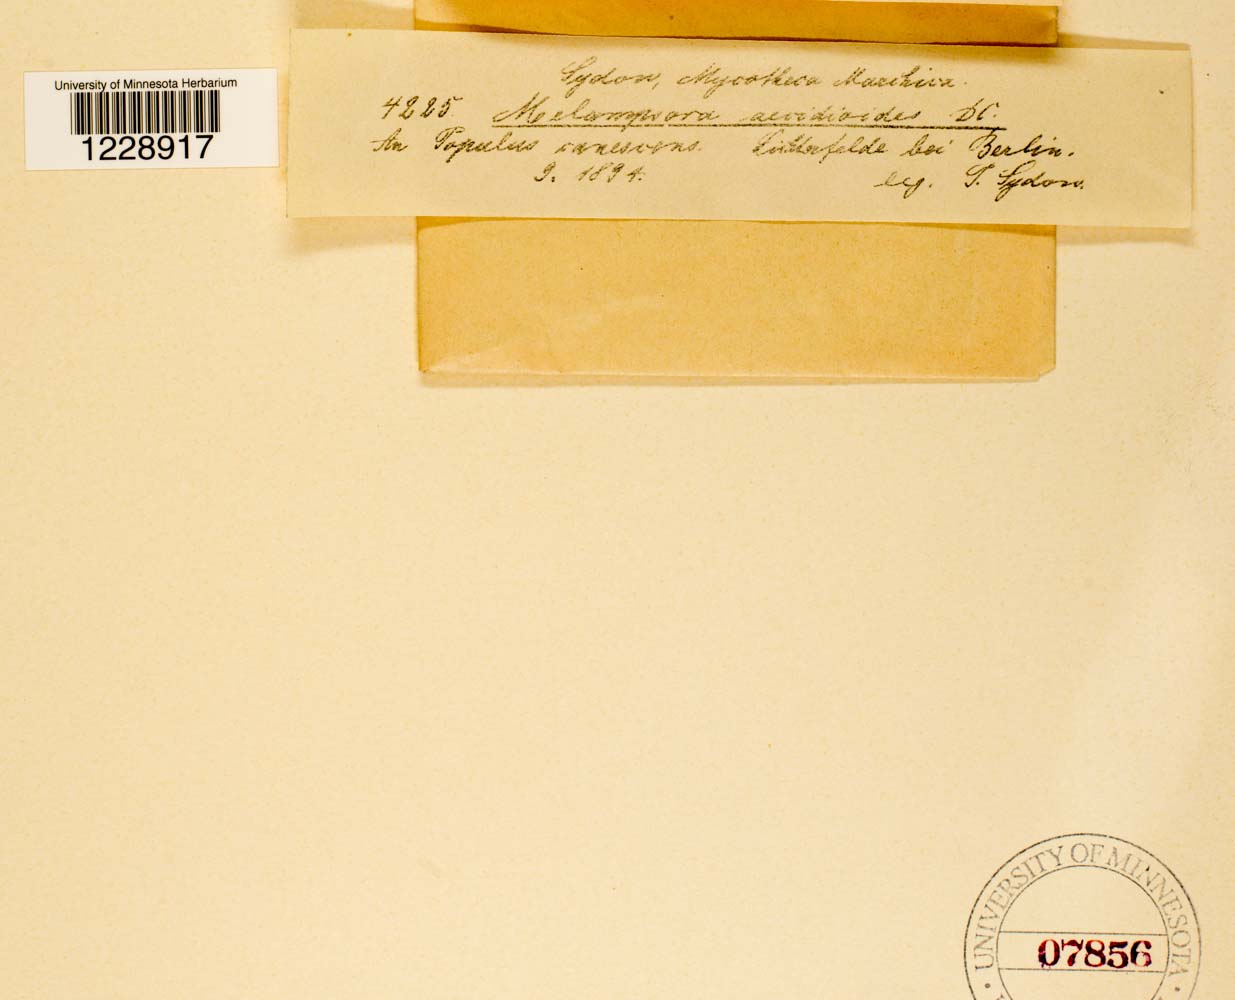 University of Minnesota Herbarium
1228917
Sydow, Mycotheca Marchica.
4225. Melampsora aecidioides DC.
An Populus canescens. Lichterfelde bei Berlin.
9. 1894. leg. P. Sydow.
UNIVERSITY OF MINNESOTA
07856